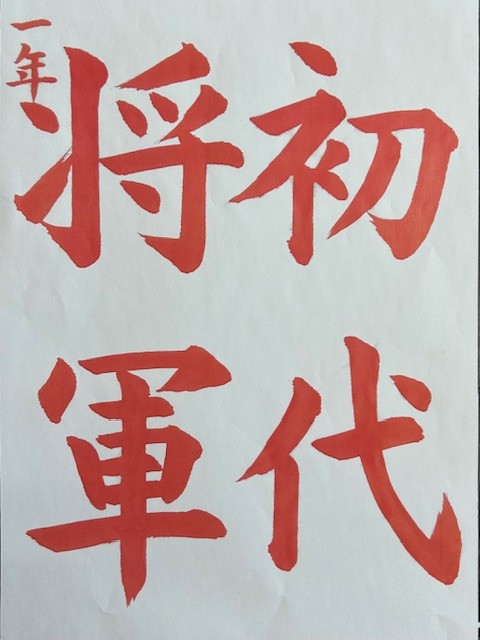 初代
将軍
一年